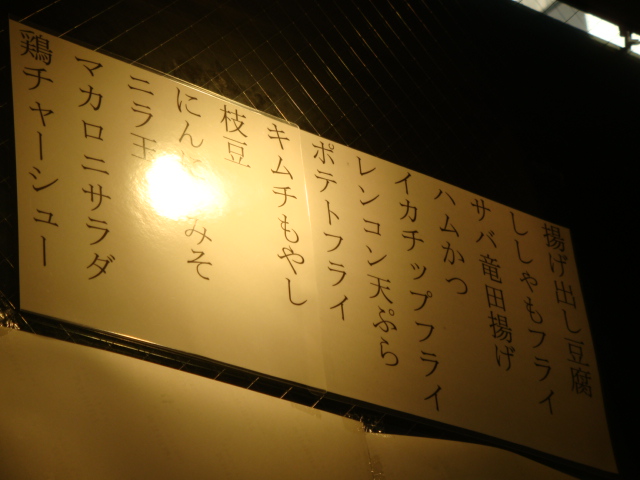 揚げ出し豆腐
ししゃもフライ
サバ竜田揚げ
ハムかつ
イカチップフライ
レンコン天ぷら
ポテトフライ
キムチもやし
枝豆
にん みそ
ニラ玉
マカロニサラダ
鶏チャーシュー